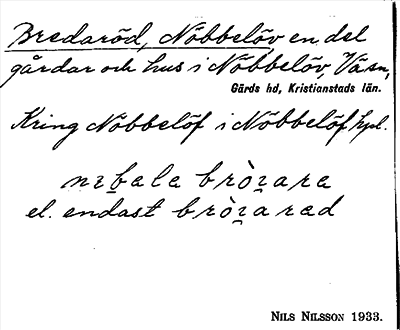 Bredaröd, Nöbbelöv en del
gårdar och hus i Nöbbelöv, Väsn,
Gärds hd, Kristianstads län.
Kring Nöbbelöf i Nöbbelöf hpl.
el. endast
NILS NILSSON 1933.